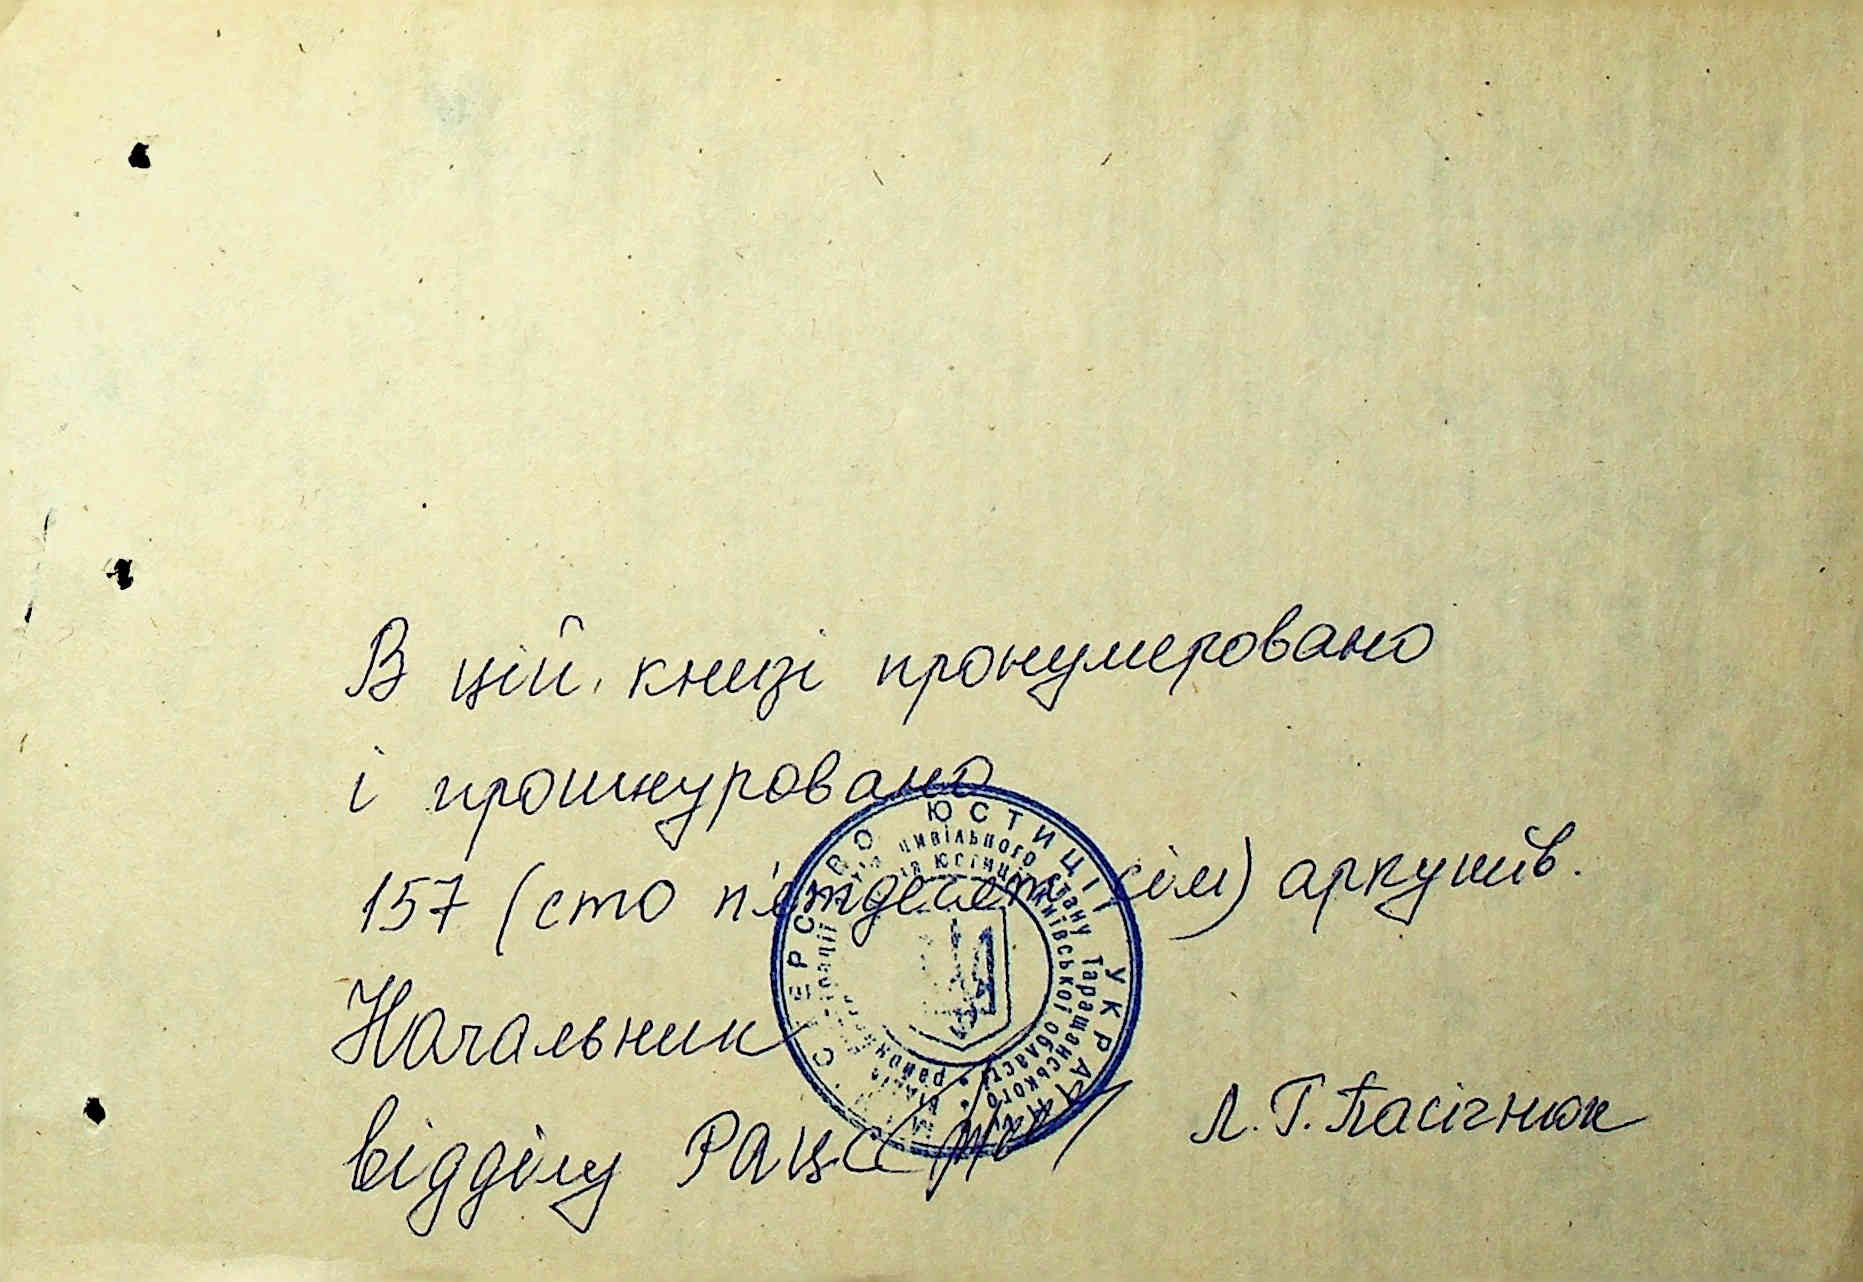 В цій книзі пронумеровано
і прошнуровано
157 (сто п'ятдесят сім) аркушів.
Начальник
відділу РАЦС Л. Г. Пасічнюк
МІНІСТЕРСТВО ЮСТИЦІЇ УКРАЇНИ
цивільного стану Таращанського
юстиції Київської області